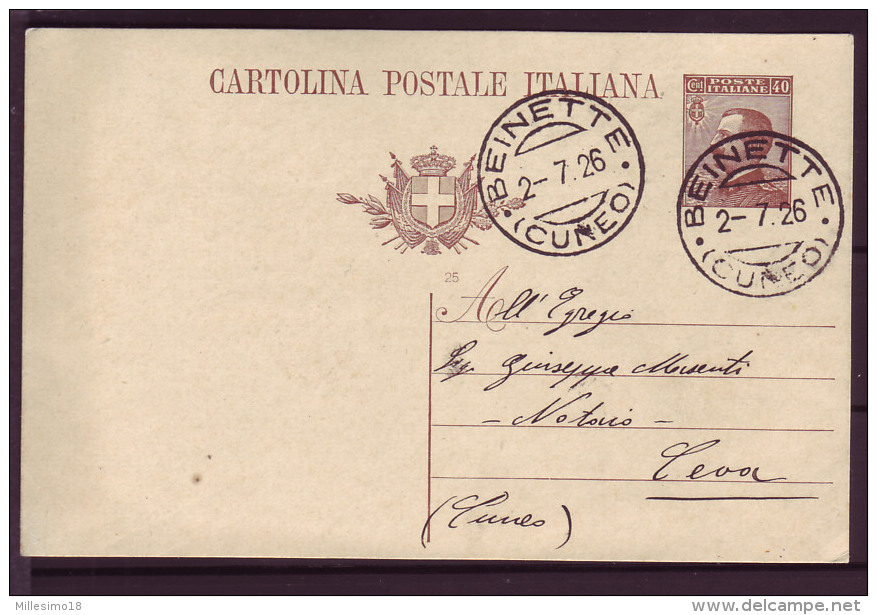 CARTOLINA POSTALE ITALIANA
Cent POSTE ITALIANE 40
BEINETTE
2-7.26
(CUNEO)
BEINETTE
2-7.26
(CUNEO)
25
All'Egregio
Sig Giuseppe
- Notaio -
Ceva
(Cuneo)
Millesimo18
delcampe.net